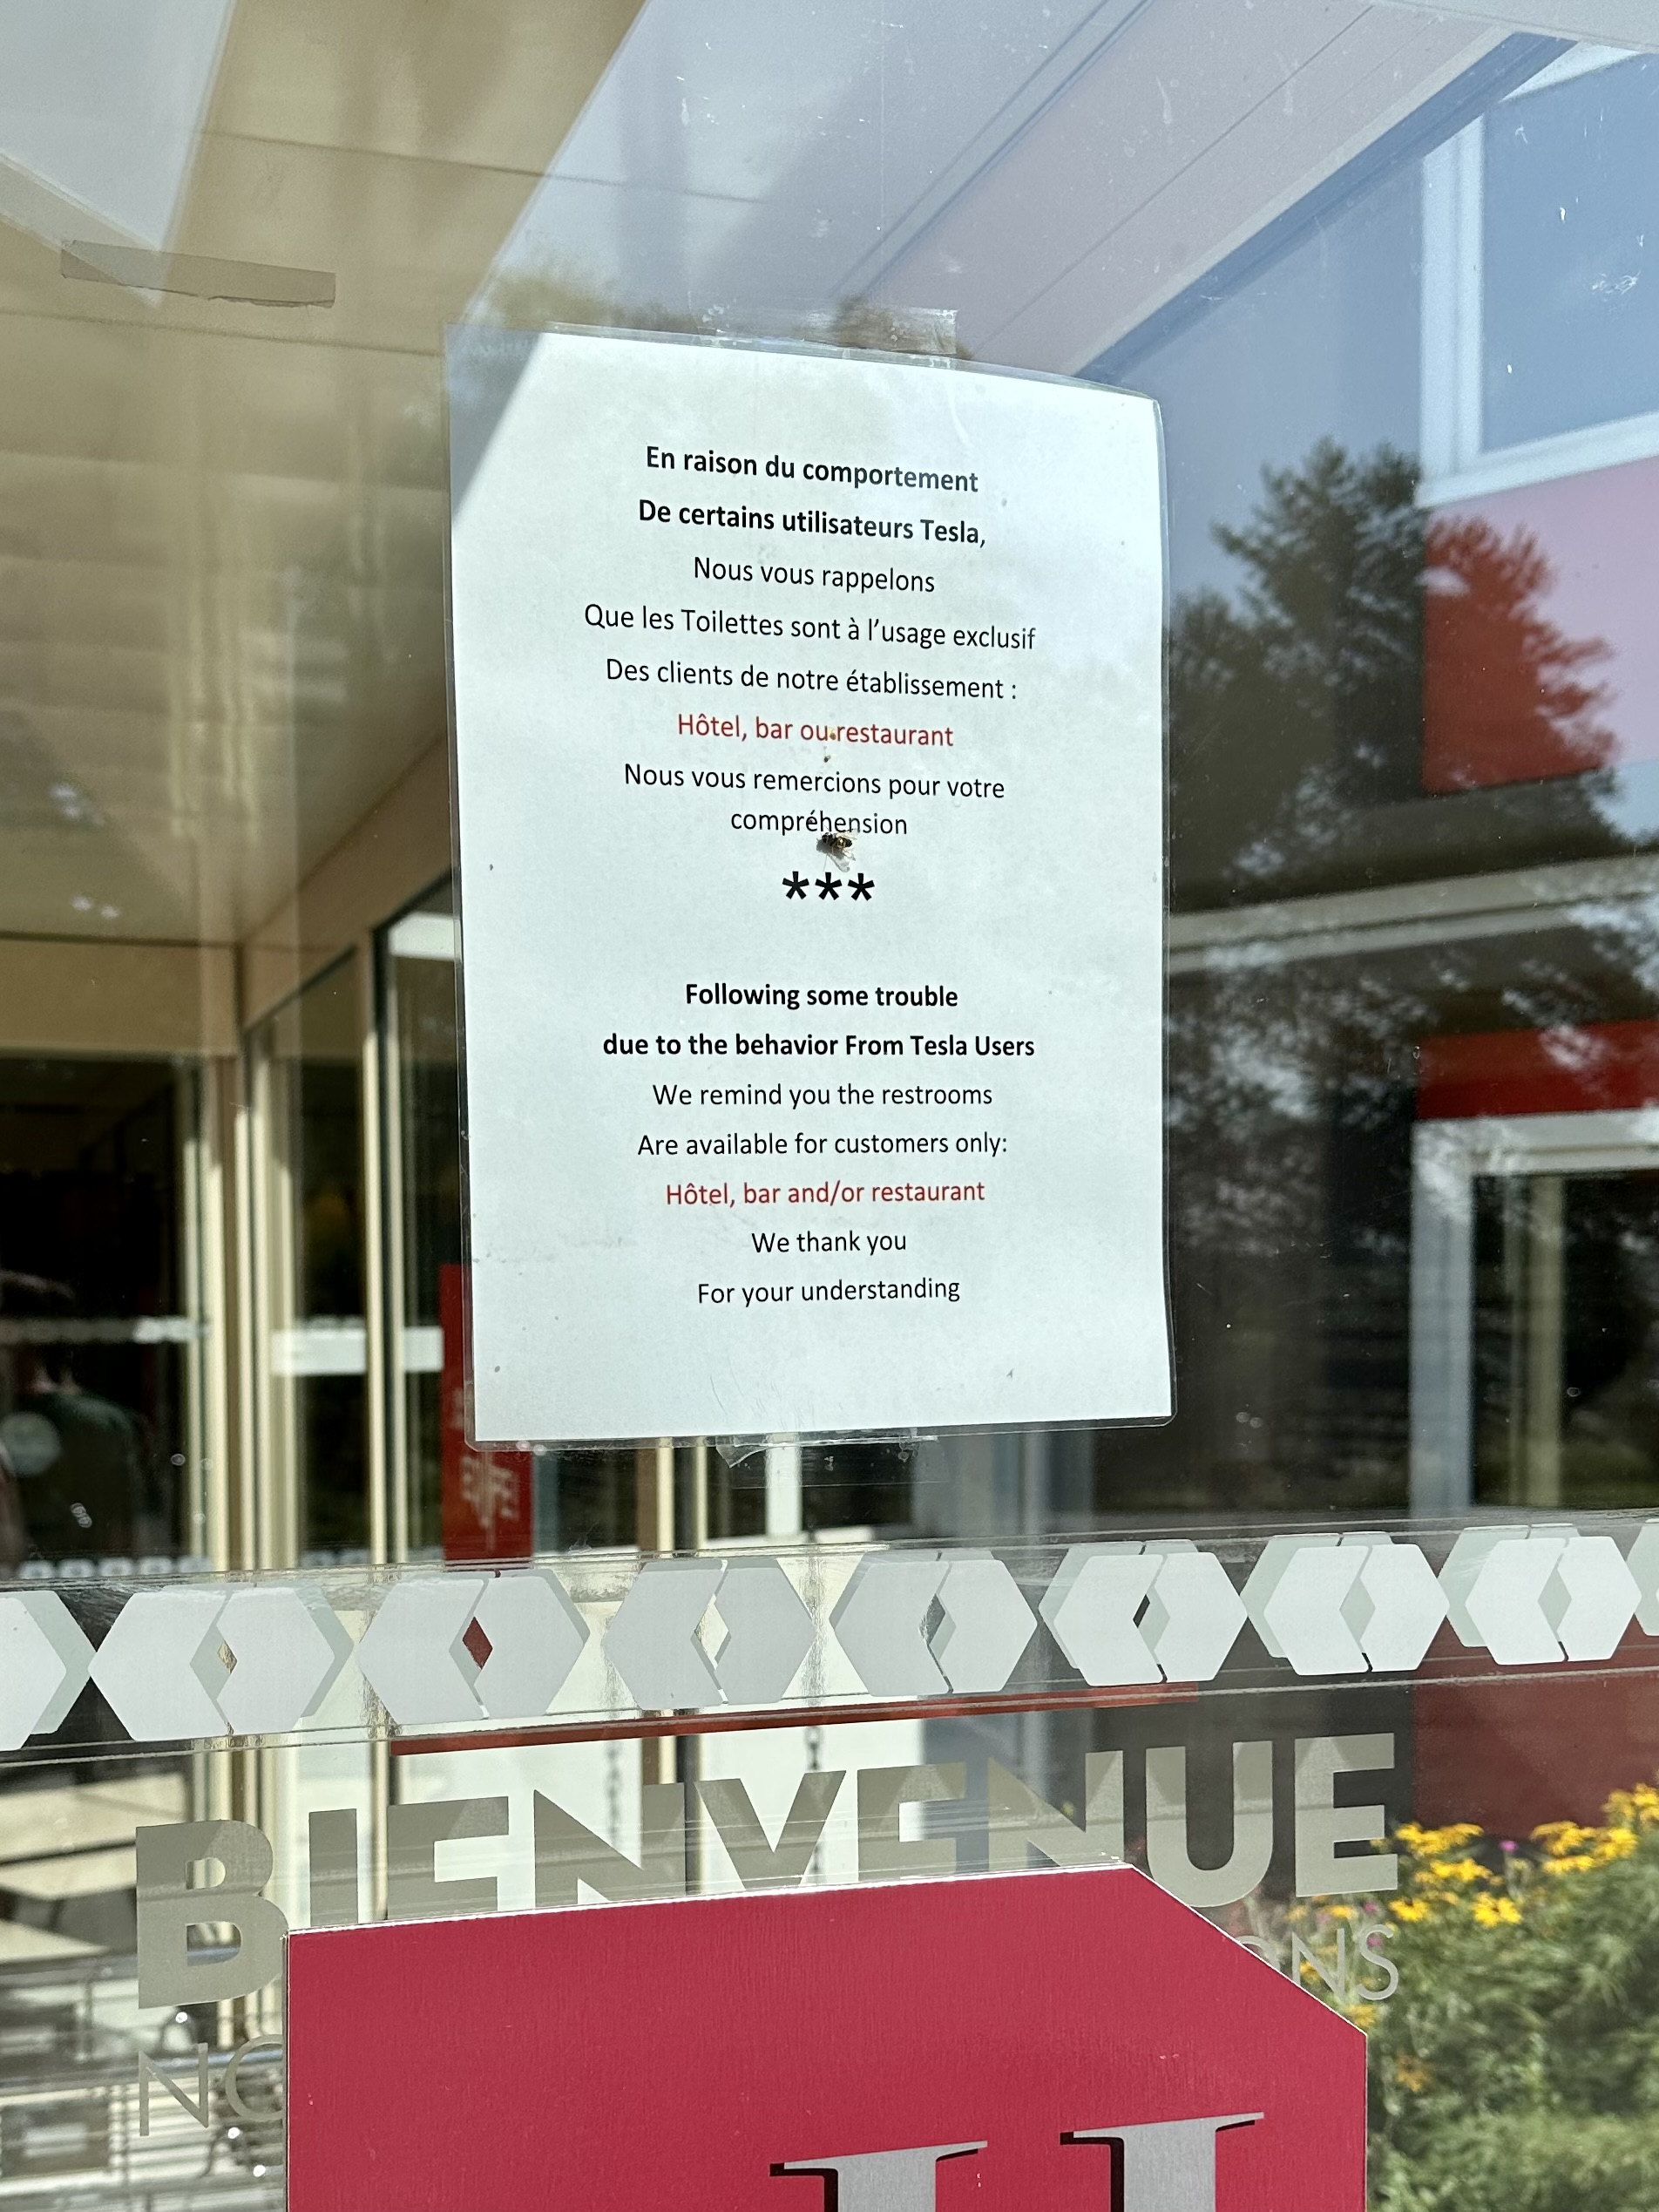 En raison du comportement
De certains utilisateurs Tesla,
Nous vous rappelons
Que les Toilettes sont à l'usage exclusif
Des clients de notre établissement :
Hôtel, bar ou restaurant
Nous vous remercions pour votre
compréhension
***
Following some trouble
due to the behavior From Tesla Users
We remind you the restrooms
Are available for customers only:
Hôtel, bar and/or restaurant
We thank you
For your understanding
BIENVENUE